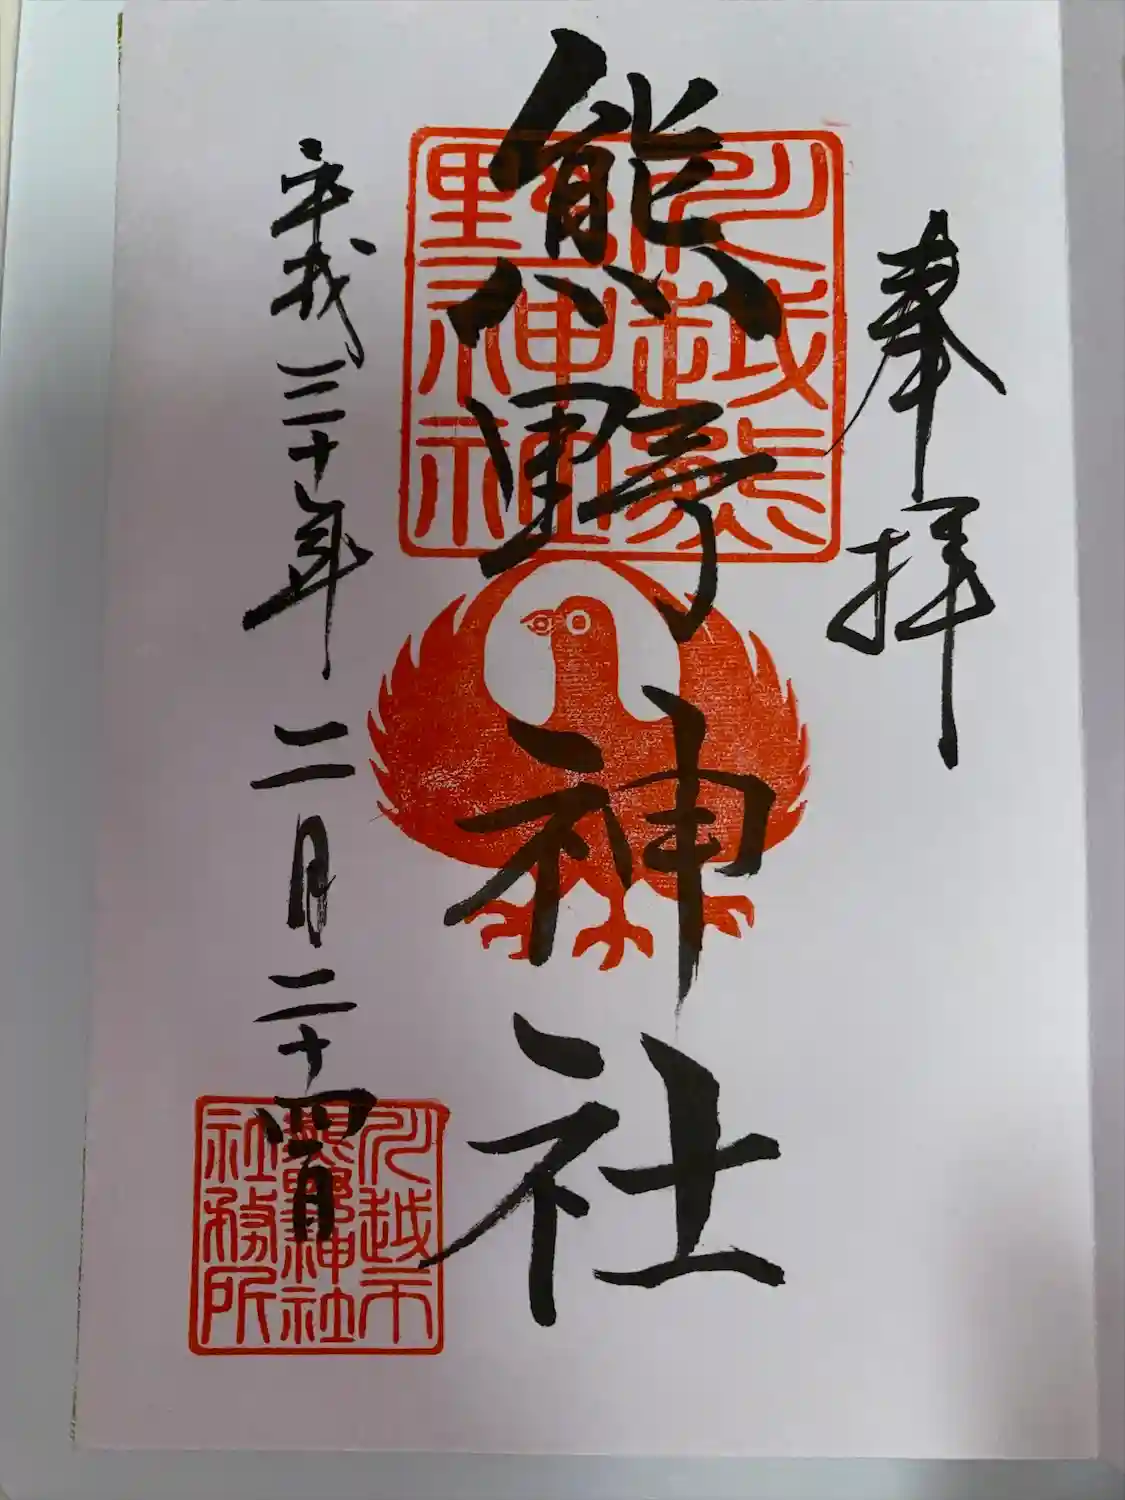 奉拝
川越熊野神社
熊野神社
平成三十年二月二十四日
川越市熊野神社社務所